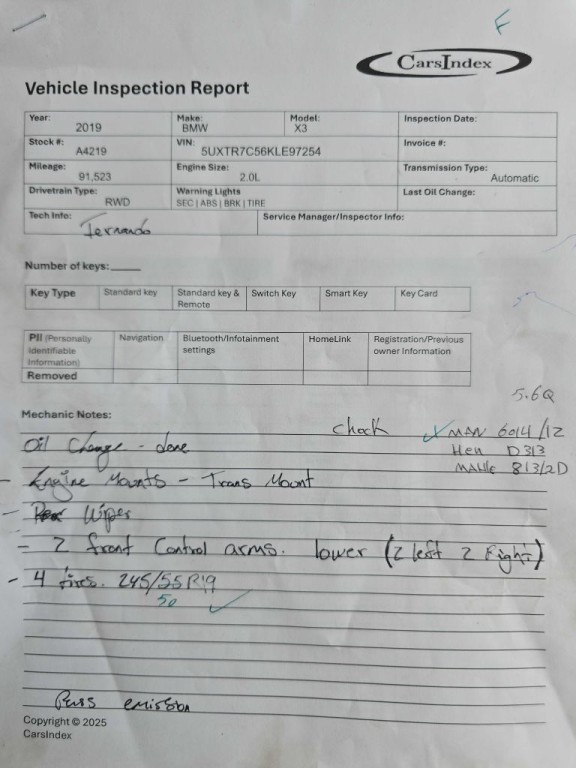 F
CarsIndex
Vehicle Inspection Report
Year: 2019 Make: BMW Model: X3 Inspection Date:
Stock #: A4219 VIN: 5UXTR7C56KLE97254 Invoice #:
Mileage: 91,523 Engine Size: 2.0L Transmission Type: Automatic
Drivetrain Type: RWD Warning Lights SEC | ABS | BRK | TIRE Last Oil Change:
Tech Info: Fernando Service Manager/Inspector Info:
Number of keys:
Key Type Standard key Standard key & Remote Switch Key Smart Key Key Card
PII (Personally Identifiable Information) Navigation Bluetooth/Infotainment settings HomeLink Registration/Previous owner Information
Removed
5.6Q
Mechanic Notes:
Check MAN 6014/12
Oil Change - done Hen D313
MAHle 813/2D
- Engine Mounts - Trans Mount
- Wiper
- 2 front Control arms. lower (2 left 2 Right)
- 4 tires. 245/55 R19
50
Pass emission
Copyright © 2025
CarsIndex